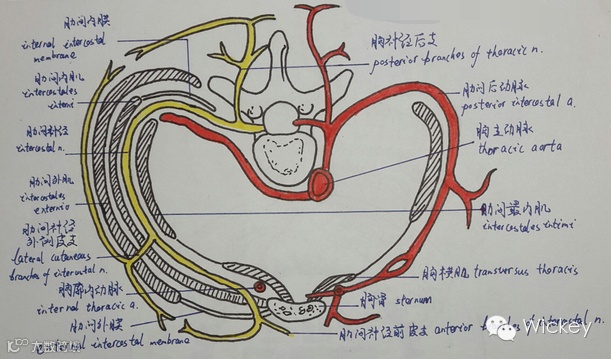 肋间内膜
internal intercostal
membrane
肋间内肌
intercostales
intimi
肋间神经
intercostal n.
肋间外肌
intercostales
externio
肋间神经
外侧皮支
lateral cutaneous
branches of intercostal n.
胸廓内动脉
internal thoracic a.
肋间外膜
intercostal membrane
胸神经后支
posterior branches of thoracic n.
肋间后动脉
posterior intercostal a.
胸主动脉
thoracic aorta
肋间最内肌
intercostales intimi
胸横肌 transversus thoracis
胸骨 sternum
肋间神经前皮支 anterior of intercostal n.
Wickey